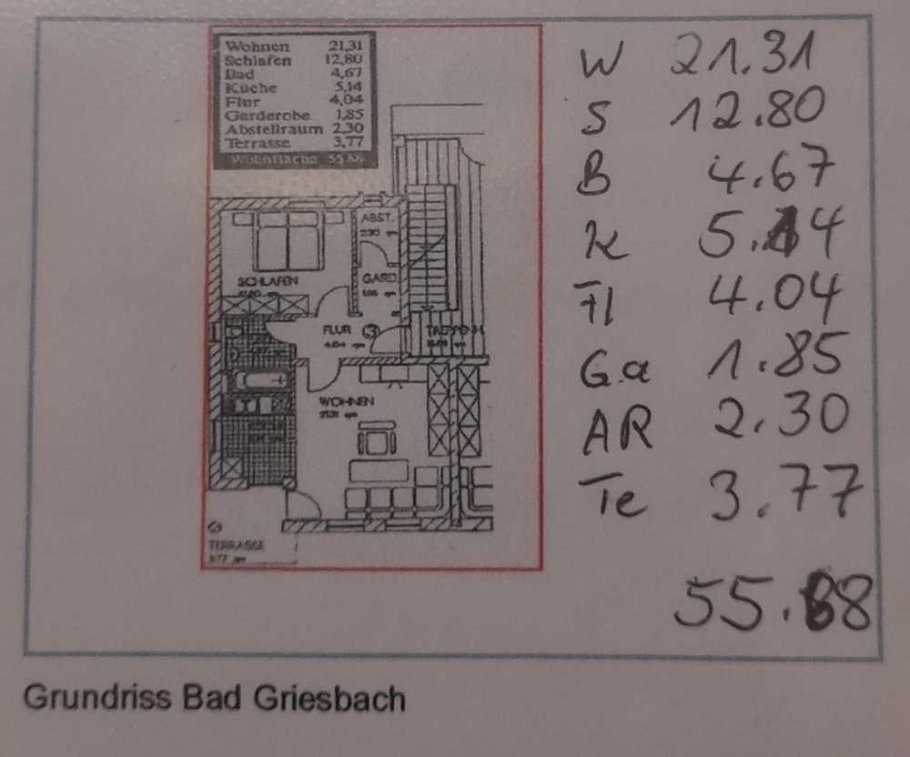 Wohnen 21,31
Schlafen 12,80
Bad 4,67
Küche 5,14
Flur 4,04
Garderobe 1,85
Abstellraum 2,30
Terrasse 3,77
Wohnfläche 55,88
W 21.31
S 12.80
B 4.67
K 5.14
Fl 4.04
Ga 1.85
AR 2.30
Te 3.77
55.88
ABST.
2.30 qm
SCHLAFEN
GARD
1.85 qm
FLUR 3
4.04 qm
WOHNEN
21.31 qm
TERRASSE
3.77 qm
Grundriss Bad Griesbach